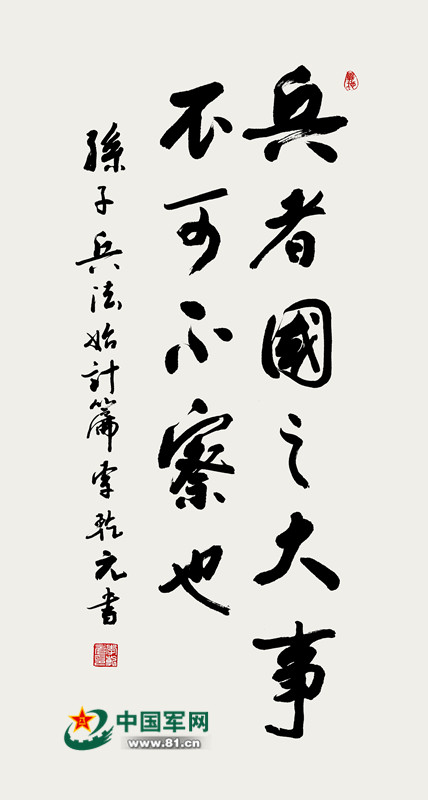 兵者國之大事
不可不察也
孫子兵法始計篇李乾元書
中国军网
www.81.cn